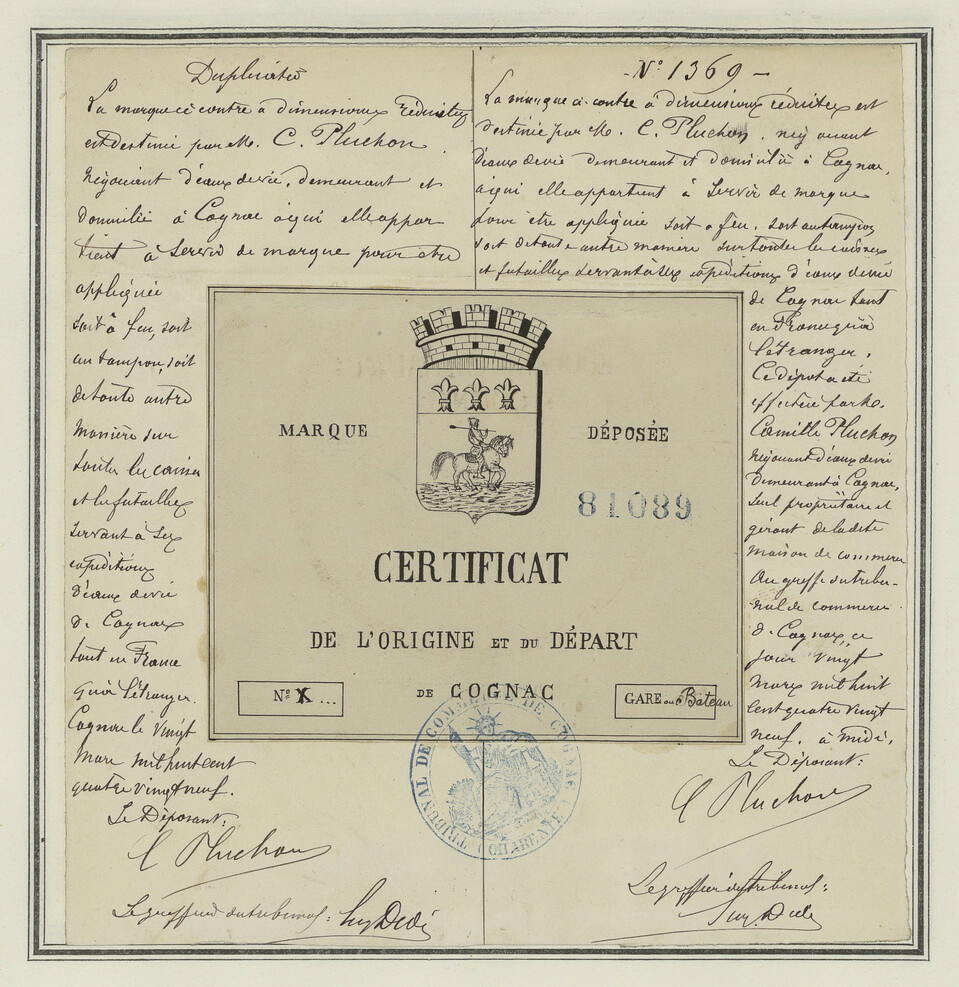 Duplicata
La marque ci contre à dimensions réduites
est destinée par M. C. Pluchon,
Négociant d'eaux de vie, demeurant et
domicilié à Cognac à qui elle appar
tient à servir de marque pour être
appliquée
soit à feu, soit
au tampon, soit
de toute autre
manière sur
toutes les caisses
et les futailles
servant à ses
expéditions
d'eaux de vie
de Cognac
tant en France
qu'à l'étranger.
Cognac le vingt
mars mil huit cent
quatre vingt neuf.
Le Déposant:
C Pluchon
Le greffier du tribunal:
- N° 1369 -
La marque ci-contre à dimensions réduites est
destinée par M. C. Pluchon, négociant
d'eaux de vie demeurant et domicilié à Cognac,
à qui elle appartient à servir de marque
pour être appliquée soit à feu, soit au tampon
soit de toute autre manière sur toutes les caisses
et futailles servant à ses expéditions d'eaux de vie
de Cognac tant
en France qu'à
l'étranger.
Ce dépôt a été
effectué par M.
Camille Pluchon
négociant d'eaux de vie
demeurant à Cognac,
seul propriétaire et
gérant de la dite
maison de commerce
au greffe du tribu-
nal de commerce
de Cognac, ce
jour vingt
mars mil huit
cent quatre vingt
neuf, à midi.
Le Déposant:
C Pluchon
Le greffier du tribunal:
MARQUE DÉPOSÉE
81089
CERTIFICAT
DE L'ORIGINE ET DU DÉPART
DE COGNAC
N° X ...
GARE ou Bateau
TRIBUNAL DE COMMERCE DE COGNAC (CHARENTE)